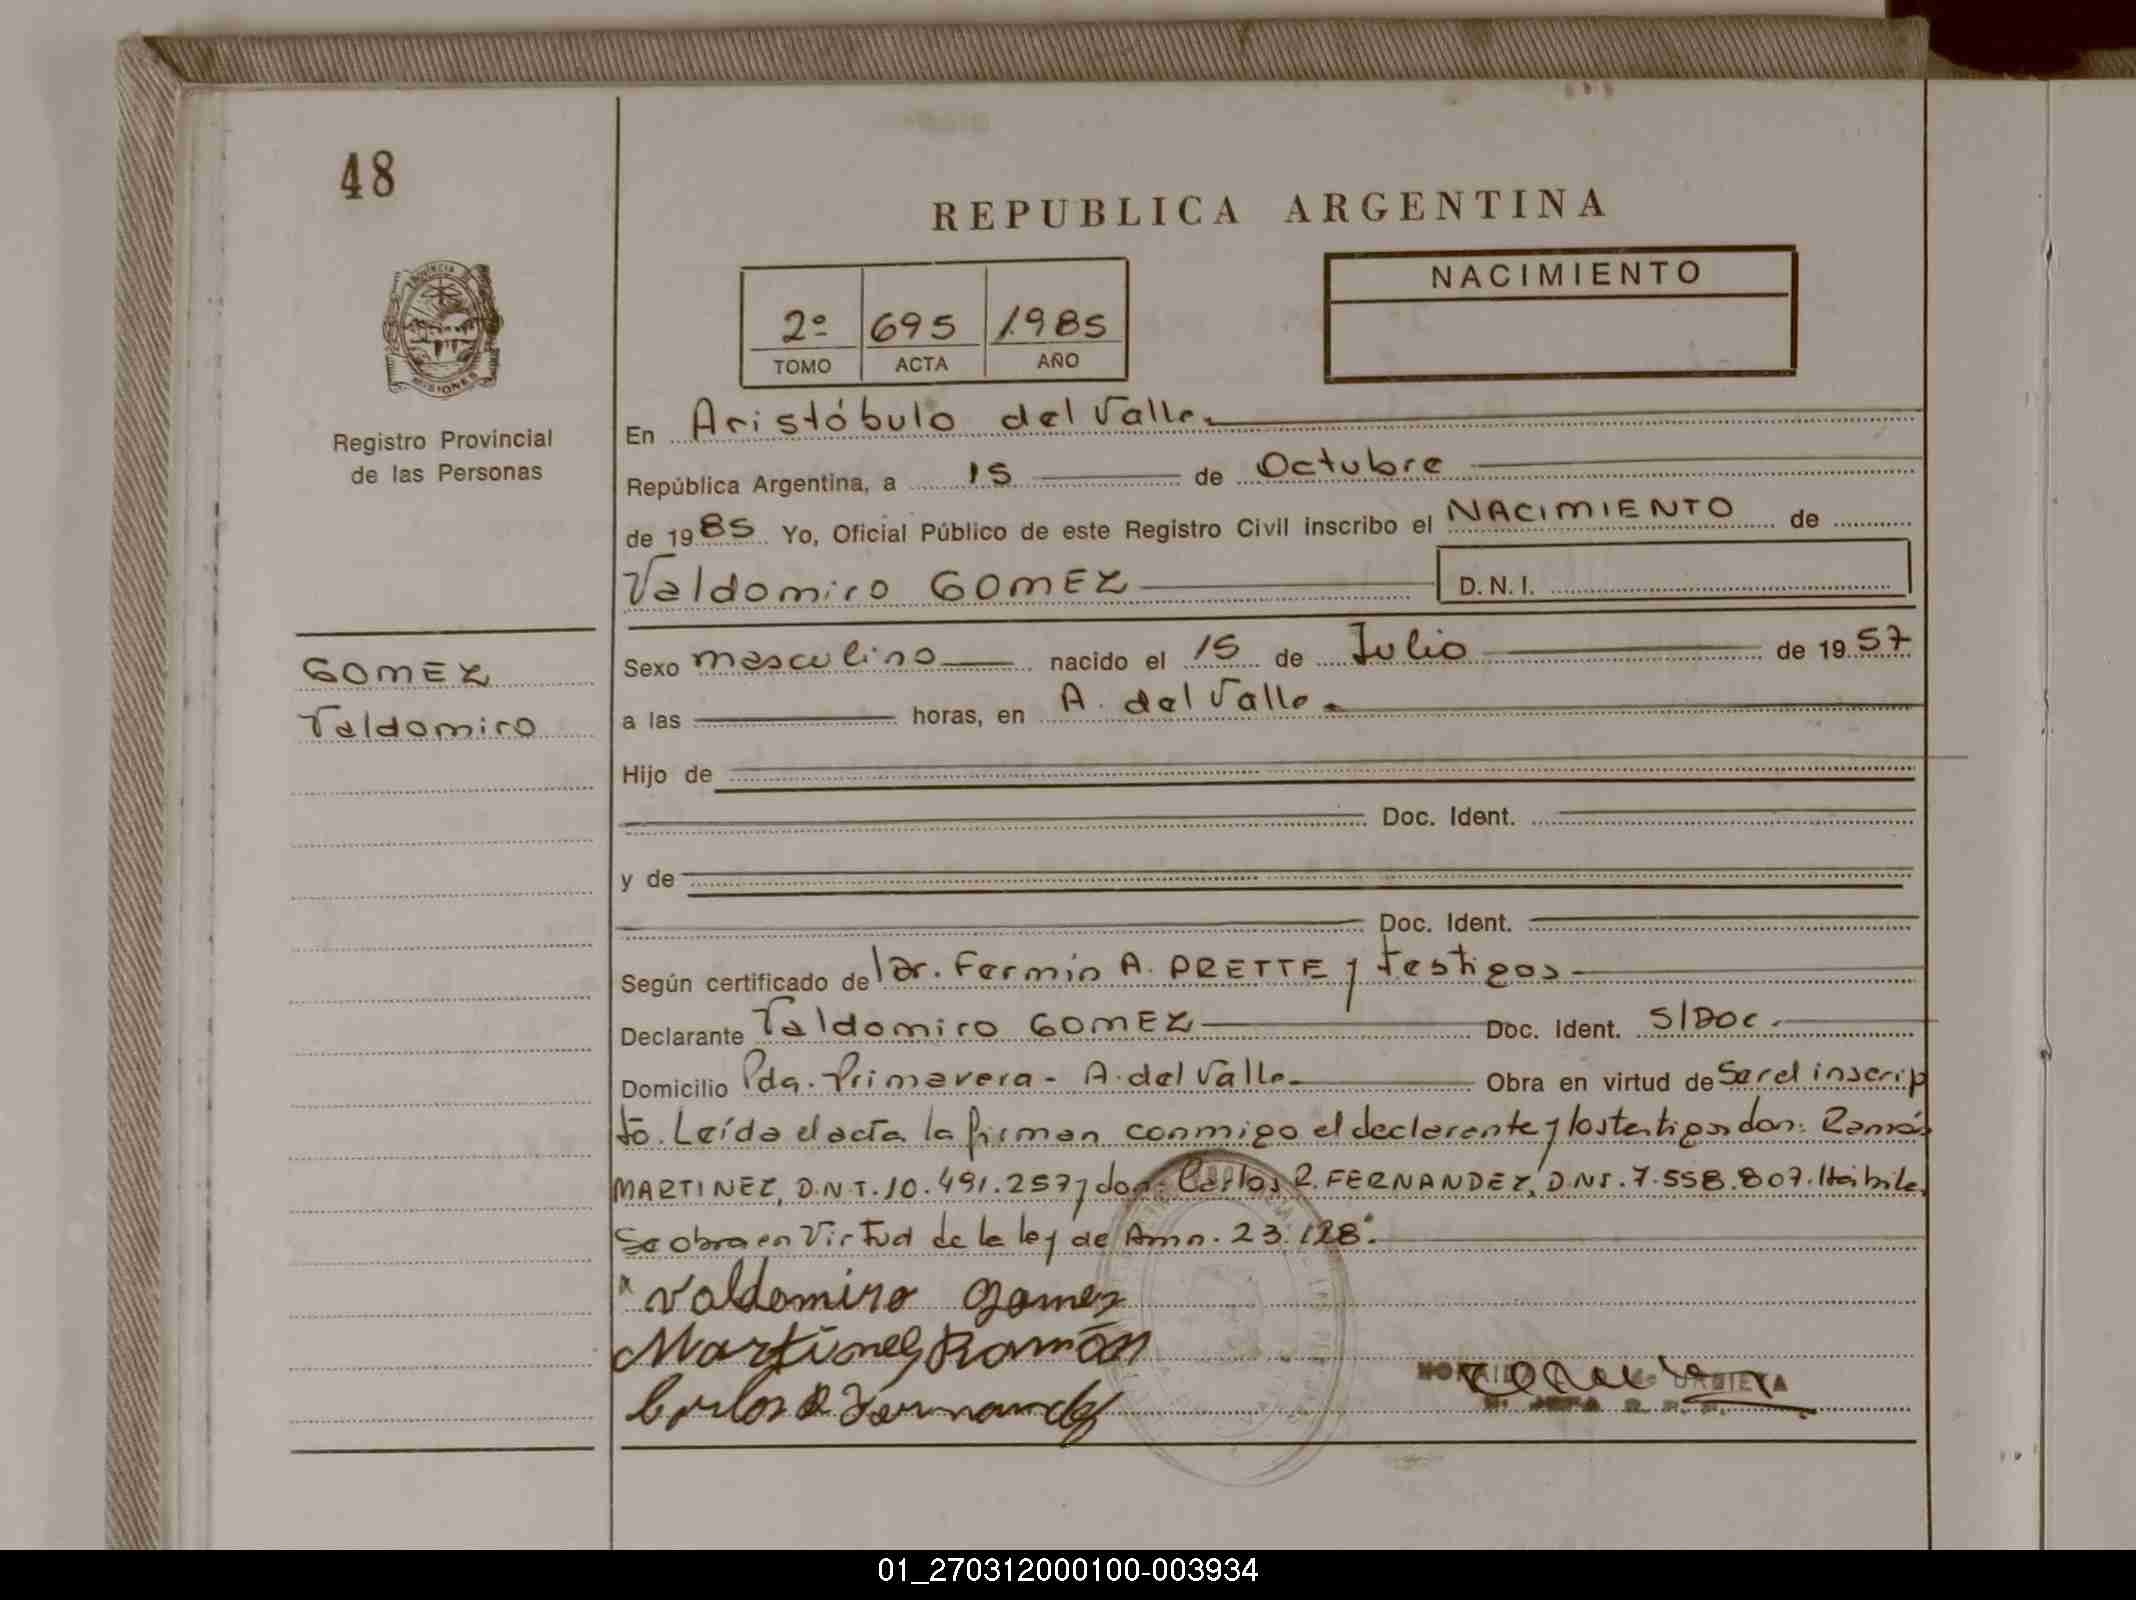 48
REPUBLICA ARGENTINA
NACIMIENTO
2º 695 1985
TOMO ACTA AÑO
PROVINCIA
MISIONES
Registro Provincial
de las Personas
En Aristóbulo del Valle
República Argentina, a 15 de Octubre
de 1985 Yo, Oficial Público de este Registro Civil inscribo el NACIMIENTO de
Valdomiro GOMEZ D.N.I.
GOMEZ
Valdomiro
Sexo masculino nacido el 15 de Julio de 1957
a las horas, en A. del Valle.
Hijo de
Doc. Ident.
y de
Doc. Ident.
Según certificado de Dr. Fermin A. PRETTE y testigos
Declarante Valdomiro GOMEZ Doc. Ident. S/Doc.
Domicilio Pda. Primavera - A. del Valle Obra en virtud de Ser el inscrip
to. Leída el acta la firman conmigo el declarante y los testigos don: Ramón
MARTINEZ, D.N.I. 10.491.257 y don Carlos R. FERNANDEZ, D.N.I. 7.558.807. Hábiles
Se obra en Virtud de la ley de Amn. 23.128.
Valdomiro Gomez
Martinez Ramón
Carlos R Fernandez
URBIETA
01_270312000100-003934